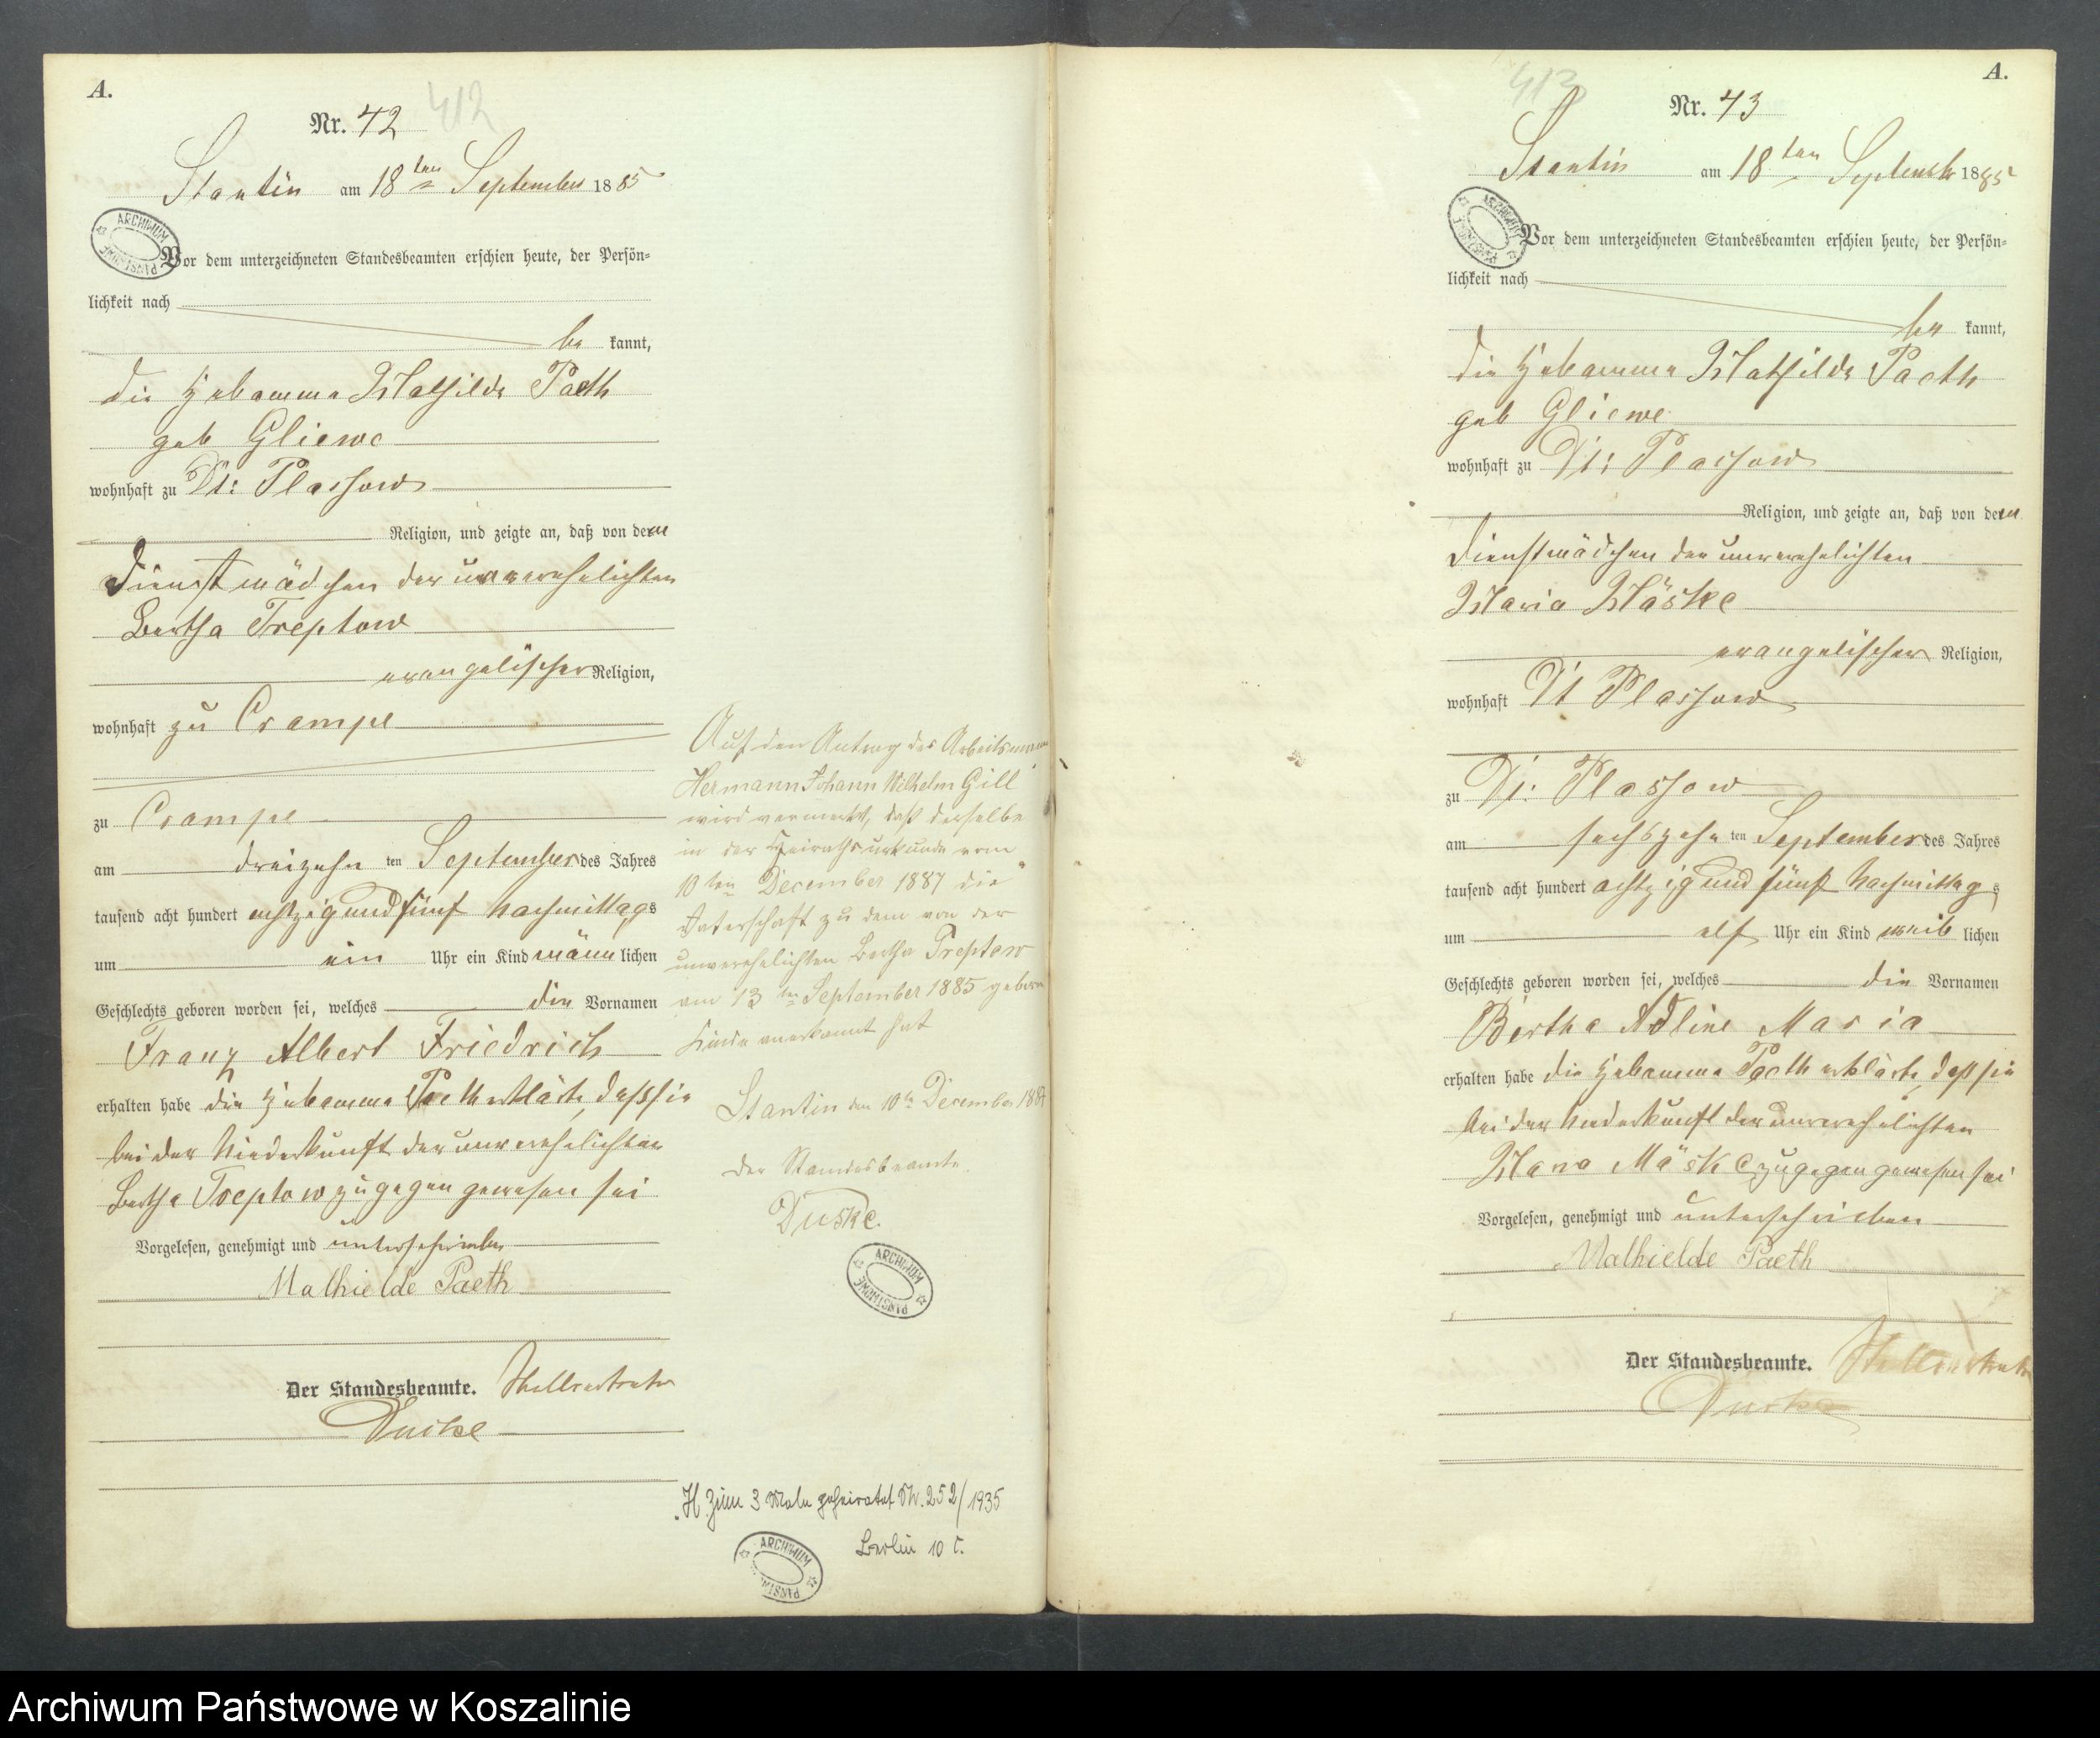 A.
Nr. 42
412
Stantin am 18ten September 1885
ARCHIWUM PAŃSTWOWE
Vor dem unterzeichneten Standesbeamten erschien heute, der Persön=
lichkeit nach
be kannt,
die Hebamme Mathilde Paeth
geb Gliewe
wohnhaft zu Dt: Plassow
Religion, und zeigte an, daß von dem
Dienstmädchen der unverehelichten
Bertha Treptow
evangelischer Religion,
wohnhaft zu Crampe
zu Crampe
am dreizehn ten September des Jahres
tausend acht hundert achtzig und fünf Nachmittags
um ein Uhr ein Kind männ lichen
Geschlechts geboren worden sei, welches die Vornamen
Franz Albert Friedrich
erhalten habe die Hebamme Paeth erklärte, daß sie
bei der Niederkunft der unverehelichten
Bertha Treptow zugegen gewesen sei
Vorgelesen, genehmigt und unterschrieben
Mathielde Paeth
Der Standesbeamte. Stellvertreter
Duske
Auf den Antrag des Arbeitsmann
Hermann Johann Wilhelm Gill
wird vermerkt, daß derselbe
in der Heirathsurkunde vom
10ten December 1887 die
Vaterschaft zu dem von der
unverehelichten Bertha Treptow
am 13ten September 1885 geboren
Kinde anerkannt hat
Stantin den 10ten December 1887
Der Standesbeamte.
Duske.
ARCHIWUM PAŃSTWOWE
H. zum 3 Male geheiratet Nr. 252/1935
Berlin 10 c.
ARCHIWUM PAŃSTW
A.
413
Nr. 43
Stantin am 18ten September 1885
ARCHIWUM PAŃSTWOWE
Vor dem unterzeichneten Standesbeamten erschien heute, der Persön=
lichkeit nach
be kannt,
die Hebamme Mathilde Paeth
geb Gliewe
wohnhaft zu Dt: Plassow
Religion, und zeigte an, daß von dem
Dienstmädchen der unverehelichten
Maria Mäske
evangelischer Religion,
wohnhaft Dt Plassow
zu Dt: Plassow
am sechszehn ten September des Jahres
tausend acht hundert achtzig und fünf Nachmittags
um elf Uhr ein Kind weib lichen
Geschlechts geboren worden sei, welches die Vornamen
Bertha Adline Maria
erhalten habe die Hebamme Paeth erklärte, daß sie
bei der Niederkunft der unverehelichten
Maria Mäske zugegen gewesen sei
Vorgelesen, genehmigt und unterschrieben
Mathielde Paeth
Der Standesbeamte. Stellvertreter
Duske
Archiwum Państwowe w Koszalinie